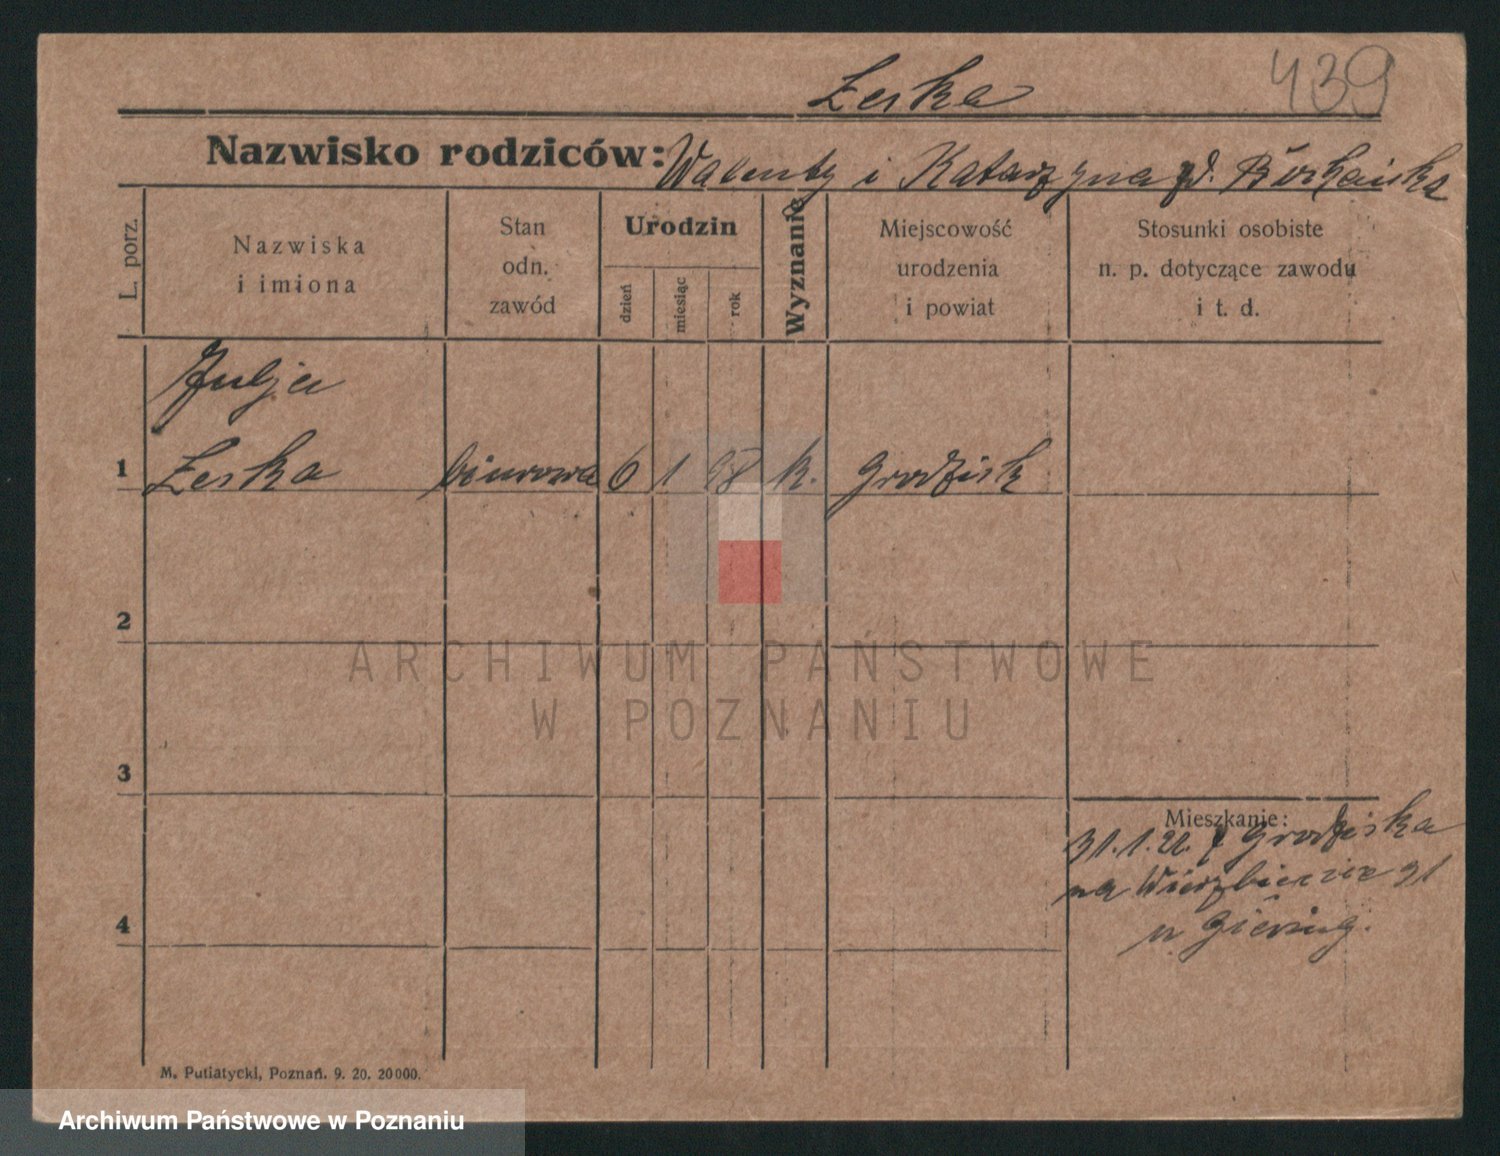 439
Leska
Nazwisko rodziców: Walenty i Katarzyna
L. porz.
Nazwiska
i imiona
Stan
odn.
zawód
Urodzin
dzień
miesiąc
rok
Wyznanie
Miejscowość
urodzenia
i powiat
Stosunki osobiste
n. p. dotyczące zawodu
i t. d.
Julja
1 Leska biurowa 6 1 98 k. Grodzisk
2
3
4
Mieszkanie:
31.1.22. z Grodziska
na Wierzbiecice 21
u
M. Putiatycki, Poznań. 9. 20. 20000.
ARCHIWUM PAŃSTWOWE
W POZNANIU
Archiwum Państwowe w Poznaniu